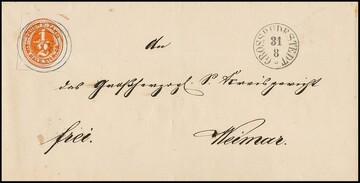 1/2
GROSSRUDESTEDT
31
8
An
das Großherzogl. S. Kreisgericht
frei.
Weimar.